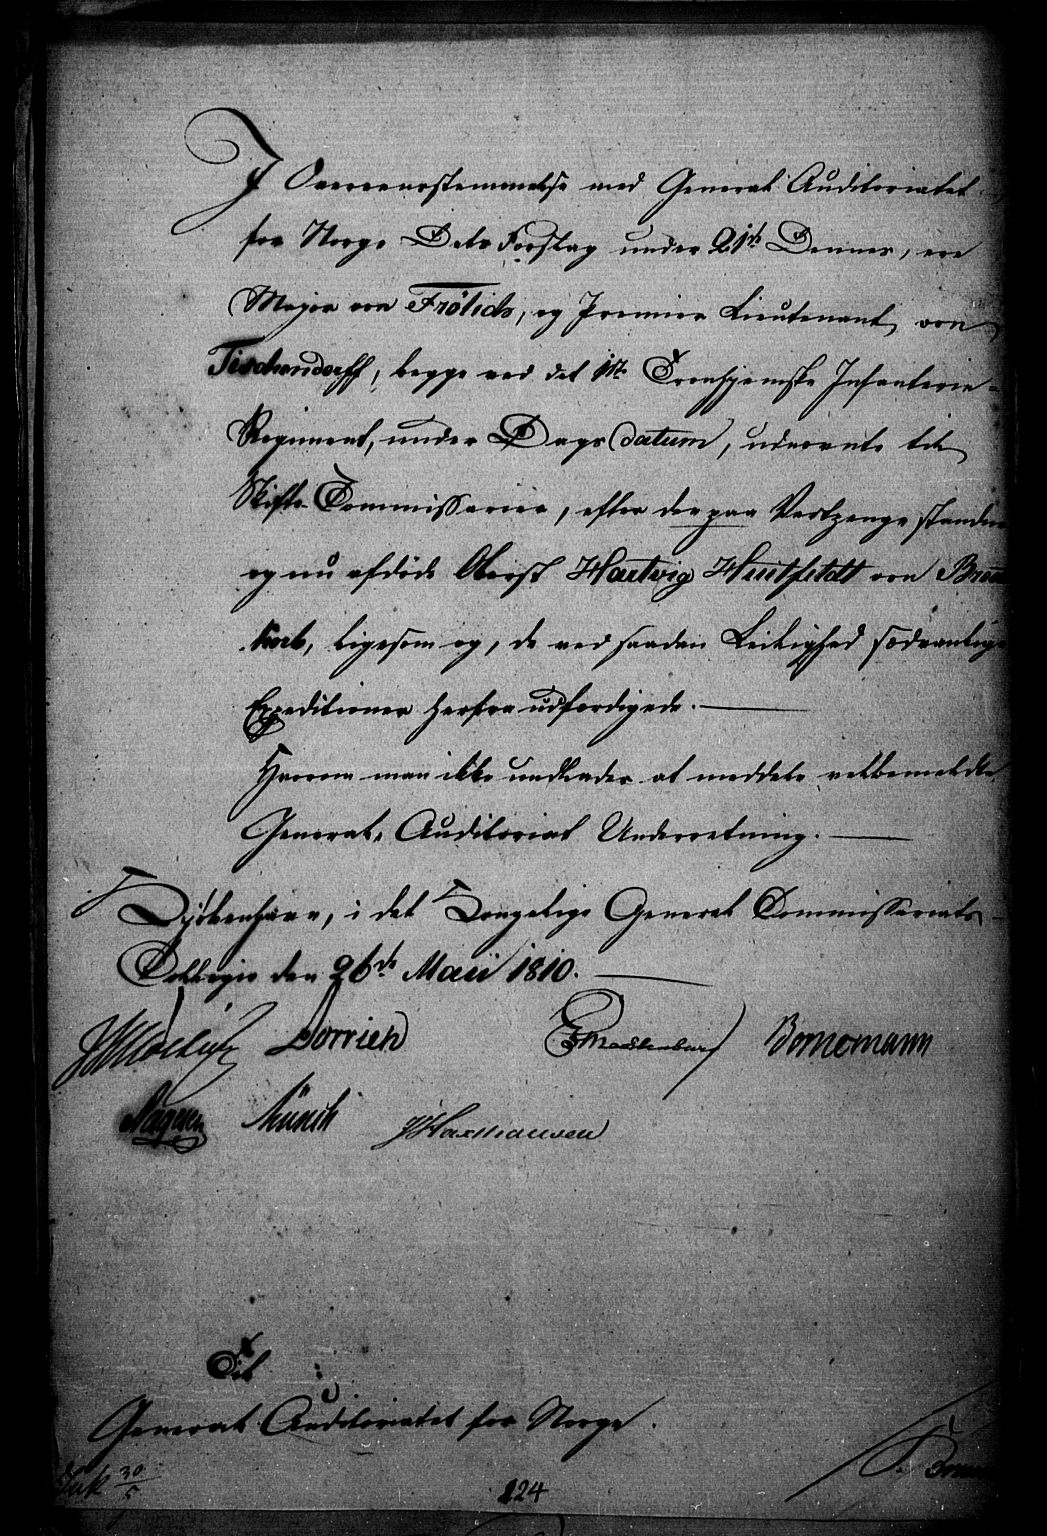 I Overeensstemmelse med General Auditoriatet
for Norge Dets Forslag under 21de Dennes, ere
Major von Frölich, og Premier Lieutenant von
Tischendorff, begge ved det 1ste Tronhjemske Infanterie-
Regiment, under Dags datum, udnevnte til
Skifte-Commissairer, efter den paa Vartpenge staaende
og nu afdöde Oberst Hartvig Huitfeldt von
ligesom og, de ved saadan Leilighed sædvanlige
Expeditioner herfra udfærdigede.
Hvorom man ikke undlader at meddele velbemeldte
General-Auditoriat Underretning.
Kjöbenhavn, i det Kongelige General Commissariats-
Collegie den 26de Maii 1810.
Lorrich Bornemann
Münch JHaxthausen
Til
General Auditoriatet for Norge.
30/5
224